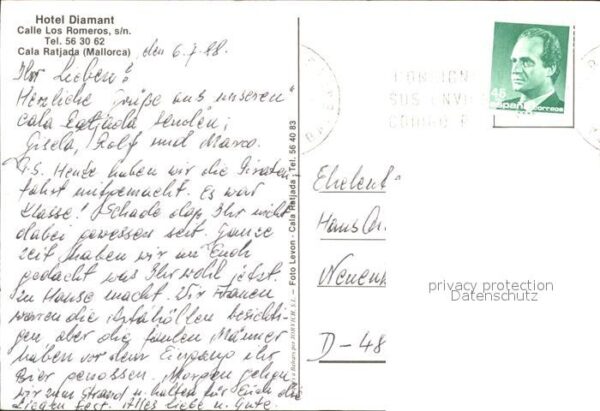 Hotel Diamant
Calle Los Romeros, s/n.
Tel. 56 30 62
Cala Ratjada (Mallorca)
den 6.7.88.
Ihr Lieben!
Herzliche Grüße aus unseren
Cala Ratjada senden;
Gisela, Rolf und Marco.
P.S. Heute haben wir die Piraten
fahrt mitgemacht. Es war
Klasse! Schade daß Ihr nicht
dabei gewesen seit. Ganze
Zeit haben wir an Euch
gedacht was Ihr wohl jetzt
zu Hause macht. Wir Frauen
waren die Artahöllen besichti-
gen aber die faulen Männer
haben vor dem Eingang ihr
Bier genossen. Morgen gehen
wir zum Strand u. halten für Euch die
Liegen fest. Alles Liebe u. Gute.
Foto Levon - Cala Ratjada - Tel. 56 40 83
45
españa correos
SUS ENVI
Eheleut
Hans
D-48
privacy protection
Datenschutz